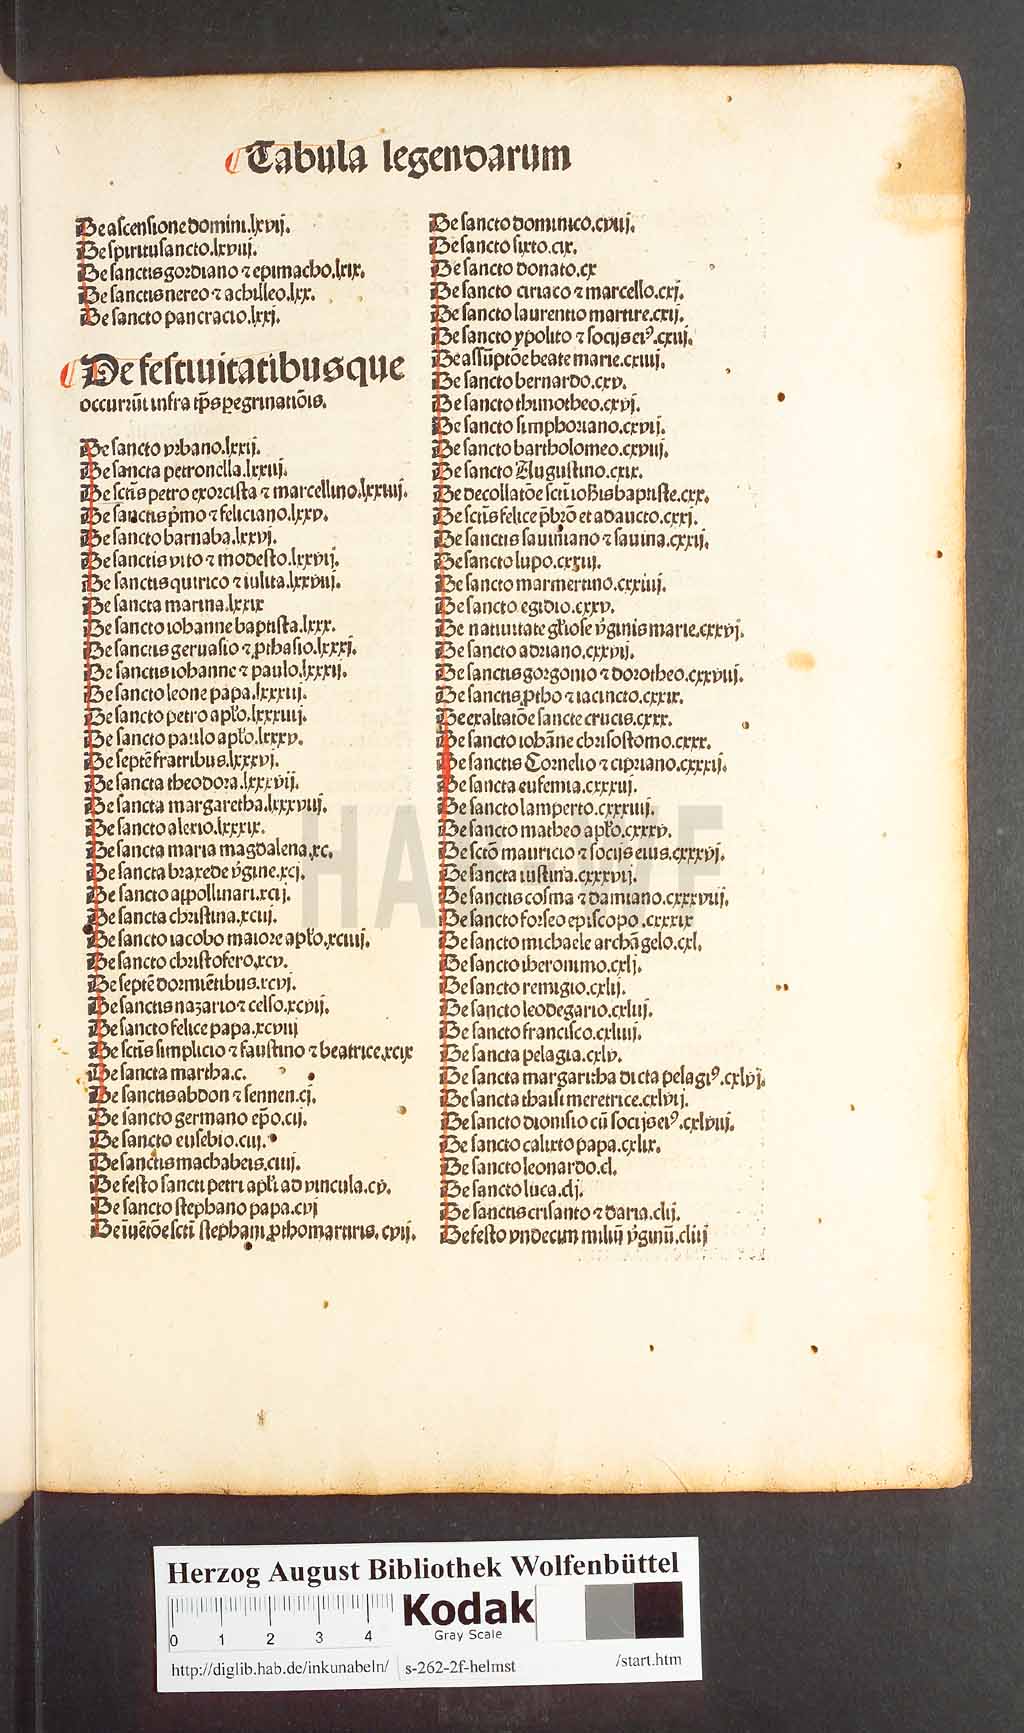 Tabula legendarum
De ascensione domini.lxvij.
De spiritu sancto.lxviij.
De sanctis gordiano ⁊ epimacho.lxix.
De sanctis nereo ⁊ achilleo.lxx.
De sancto pancracio.lxxj.
De festiuitatibus que
occurrūt infra tp̄s peregrinatiōis.
De sancto vrbano.lxxij.
De sancta petronella.lxxiij.
De sctīs petro exorcista ⁊ marcellino.lxxiiij.
De sanctis pͥmo ⁊ feliciano.lxxv.
De sancto barnaba.lxxvj.
De sanctis vito ⁊ modesto.lxxvij.
De sanctis quirico ⁊ iulita.lxxviij.
De sancta marina.lxxix
De sancto iohanne baptista.lxxx.
De sanctis geruasio ⁊ ꝓthasio.lxxxj.
De sanctis iohanne ⁊ paulo.lxxxij.
De sancto leone papa.lxxxiij.
De sancto petro apl̓o.lxxxiiij.
De sancto paulo apl̓o.lxxxv.
De septē fratribus.lxxxvj.
De sancta theodora.lxxxvij.
De sancta margaretha.lxxxviij.
De sancto alexio.lxxxix.
De sancta maria magdalena.xc.
De sancta braxede v̓gine.xcj.
De sancto appollinari.xcij.
De sancta christina.xciij.
De sancto iacobo maiore apl̓o.xciiij.
De sancto christofero.xcv.
De septē dormiētibus.xcvj.
De sanctis nazario ⁊ celso.xcvij.
De sancto felice papa.xcviij
De sctīs simplicio ⁊ faustino ⁊ beatrice.xcix
De sancta martha.c.
De sanctis abdon ⁊ sennen.cj.
De sancto germano ep̄o.cij.
De sancto eusebio.ciij.
De sanctis machabeis.ciiij.
De festo sancti petri apl̓i ad vincula.cv.
De sancto stephano papa.cvj
De īuētōe sctī stephani ꝓthomartiris.cvij.
De sancto dominico.cviij.
De sancto sixto.cix.
De sancto donato.cx
De sancto ciriaco ⁊ marcello.cxj.
De sancto laurentio martire.cxij.
De sancto ypolito ⁊ socijs eiꝰ.cxiij.
De assūptōe beate marie.cxiiij.
De sancto bernardo.cxv.
De sancto thimotheo.cxvj.
De sancto simphoriano.cxvij.
De sancto bartholomeo.cxviij.
De sancto Augustino.cxix.
De decollatōe sctī iohīs baptiste.cxx.
De sctīs felice p̄brō et adaucto.cxxj.
De sanctis sauiniano ⁊ sauina.cxxij.
De sancto lupo.cxxiij.
De sancto marmertino.cxxiiij.
De sancto egidio.cxxv.
De natiuitate gl̓iose v̓ginis marie.cxxvj.
De sancto adriano.cxxvij.
De sanctis gorgonio ⁊ dorotheo.cxxviij.
De sanctis ꝓtho ⁊ iacincto.cxxix.
De exaltatōe sancte crucis.cxxx.
De sancto iohāne chrisostomo.cxxx.
De sanctis Cornelio ⁊ cipriano.cxxxij.
De sancta eufemia.cxxxiij.
De sancto lamperto.cxxxiiij.
De sancto matheo apl̓o.cxxxv.
De sctō mauricio ⁊ socijs eius.cxxxvj.
De sancta iustina.cxxxvij.
De sanctis cosma ⁊ damiano.cxxxviij.
De sancto forseo episcopo.cxxxix
De sancto michaele archāgelo.cxl.
De sancto iheronimo.cxlj.
De sancto remigio.cxlij.
De sancto leodegario.cxliij.
De sancto francisco.cxliiij.
De sancta pelagia.cxlv.
De sancta margaritha dicta pelagiꝰ.cxlvj.
De sancta thaisi meretrice.cxlvij.
De sancto dionisio cū socijs eiꝰ.cxlviij.
De sancto calixto papa.cxlix.
De sancto leonardo.cl.
De sancto luca.clj.
De sanctis crisanto ⁊ daria.clij.
De festo vndecim miliū v̓ginū.cliij
HAB WF
Herzog August Bibliothek Wolfenbüttel
0 1 2 3 4
Kodak
Gray Scale
http://diglib.hab.de/inkunabeln/ s-262-2f-helmst /start.htm